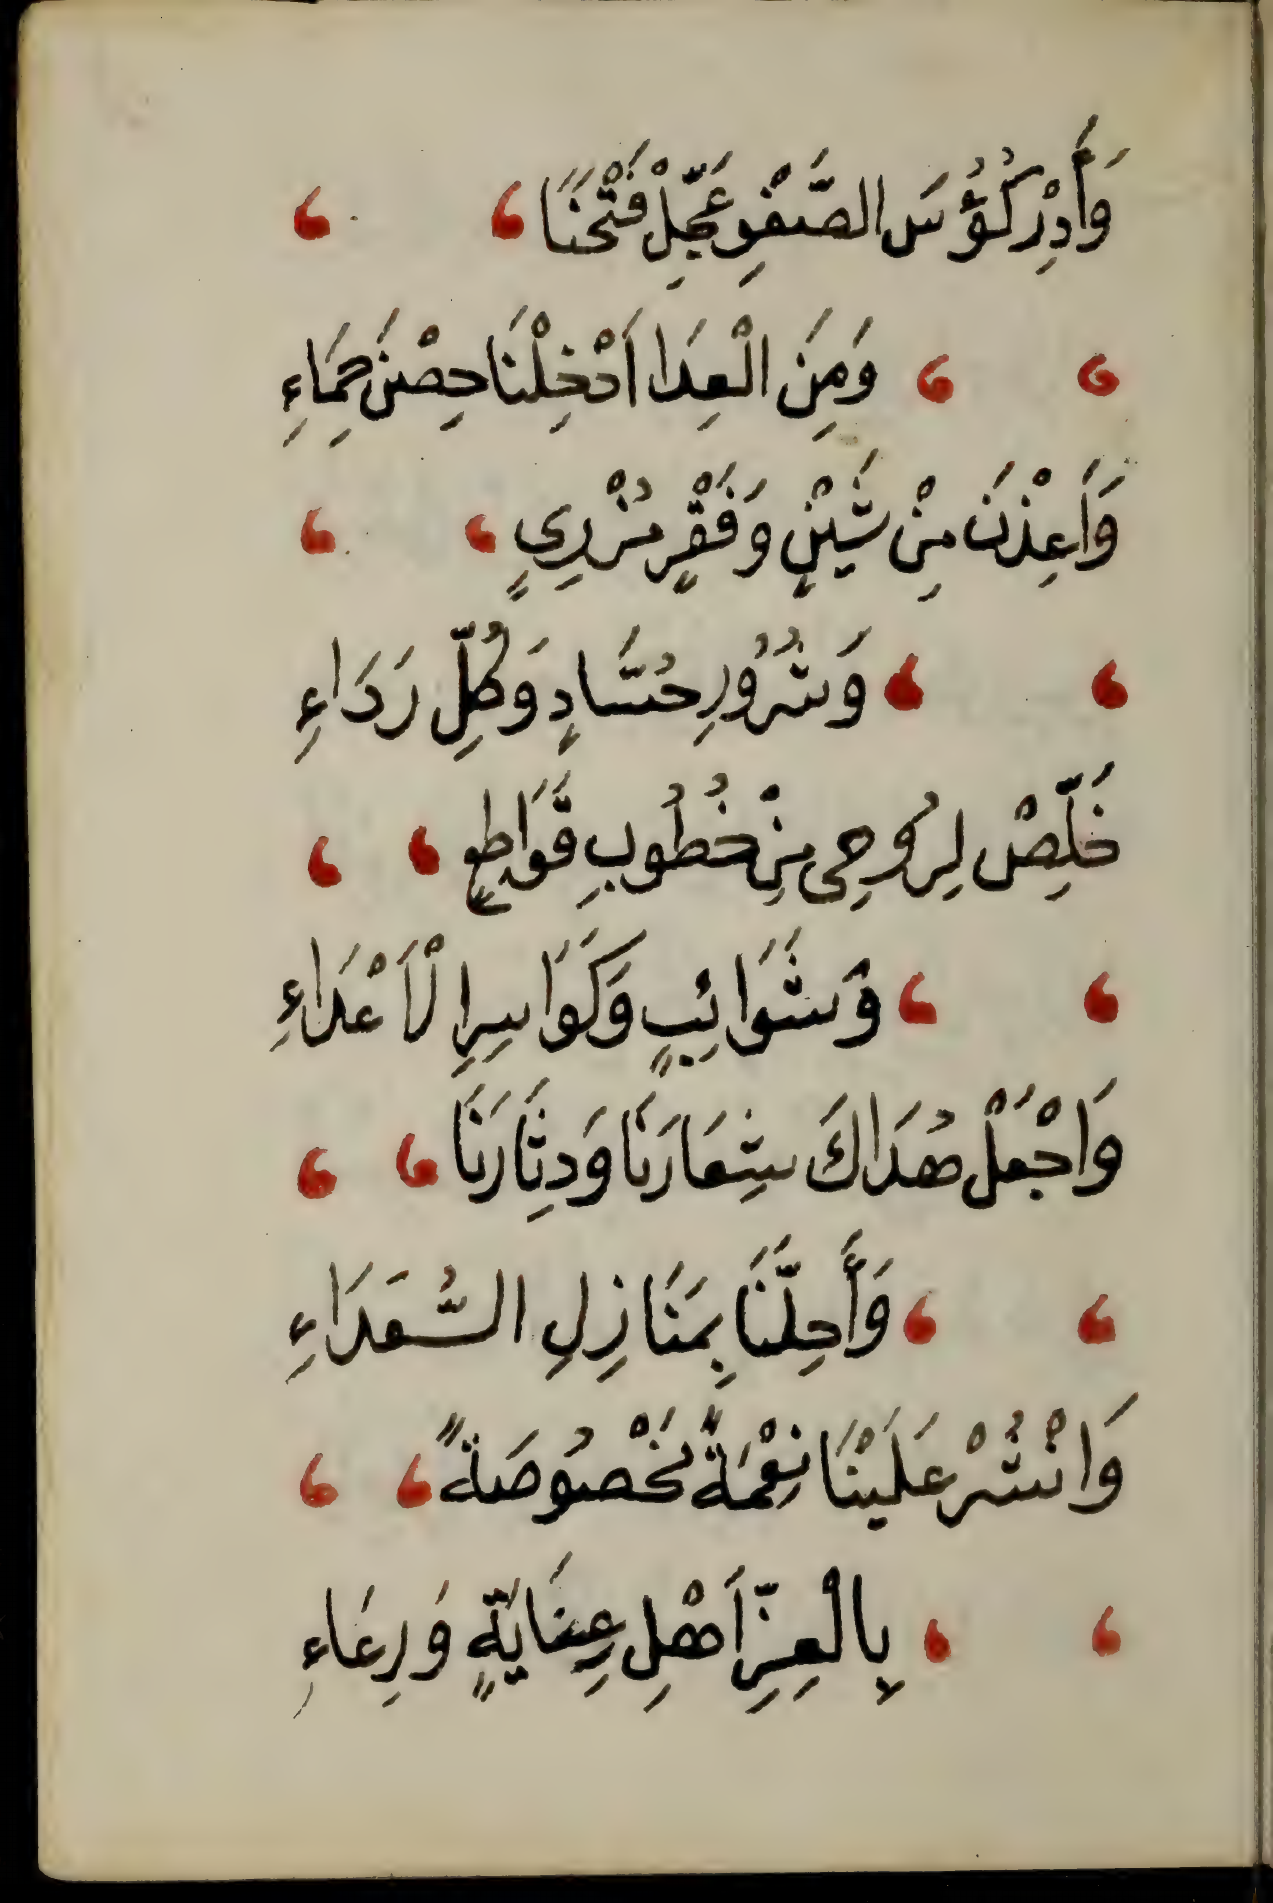 وَأَدِرْ كُؤُوسَ الصَّفْوِ عَجِّلْ فَتْحَنَا
وَمِنَ الْعِدَا اَدْخِلْنَا حِصْنَ حِمَاءِ
وَاَعِذْنَ مِنْ شَيْنٍ وَفَقْرٍ مُزْرِيٍ
وَشُرُوْرِ حُسَّادٍ وَكُلِّ رَدَاءِ
خَلِّصْ لِرُوحِى مِنْ خُطُوبٍ قَوَاطِعٍ
وَشَوَائِبٍ وَكَوَاسِرِ الْاَعْدَاءِ
وَاجْعَلْ هُدَاكَ شِعَارَنَا وَدِثَارَنَا
وَأَحِلَّنَا بِمَنَازِلِ السُّعَدَاءِ
وَانْشُرْ عَلَيْنَا نِعْمَةً مَخْصُوصَةً
بِالْعِزِّ اَهْلِ عِنَايَةٍ وَرِعَاءِ